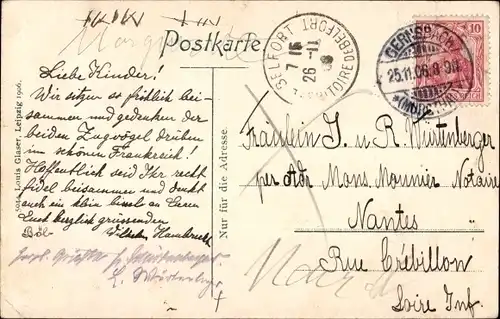 Postkarte
Liebe Kinder!
Wir sitzen so fröhlich bei-
sammen und gedenken der
beiden Zugvögel drüben
im schönen Frankreich!
Hoffentlich seid Ihr recht
fidel beisammen und denkt
auch ein klein bissel an Eeren
Euch herzlich grüssenden
Wilhelm
Gust. Louis Glaser, Leipzig 1906.
Nur für die Adresse.
BELFORT
26 -11
GERNSBACH
25.11.06. 8-9N
(MURGTHAL)
10
Fräulein J. u R. Würtenberger
per Adr Mons. Monnier Notaire
Nantes
Rue Crébillon
Loire Inf.